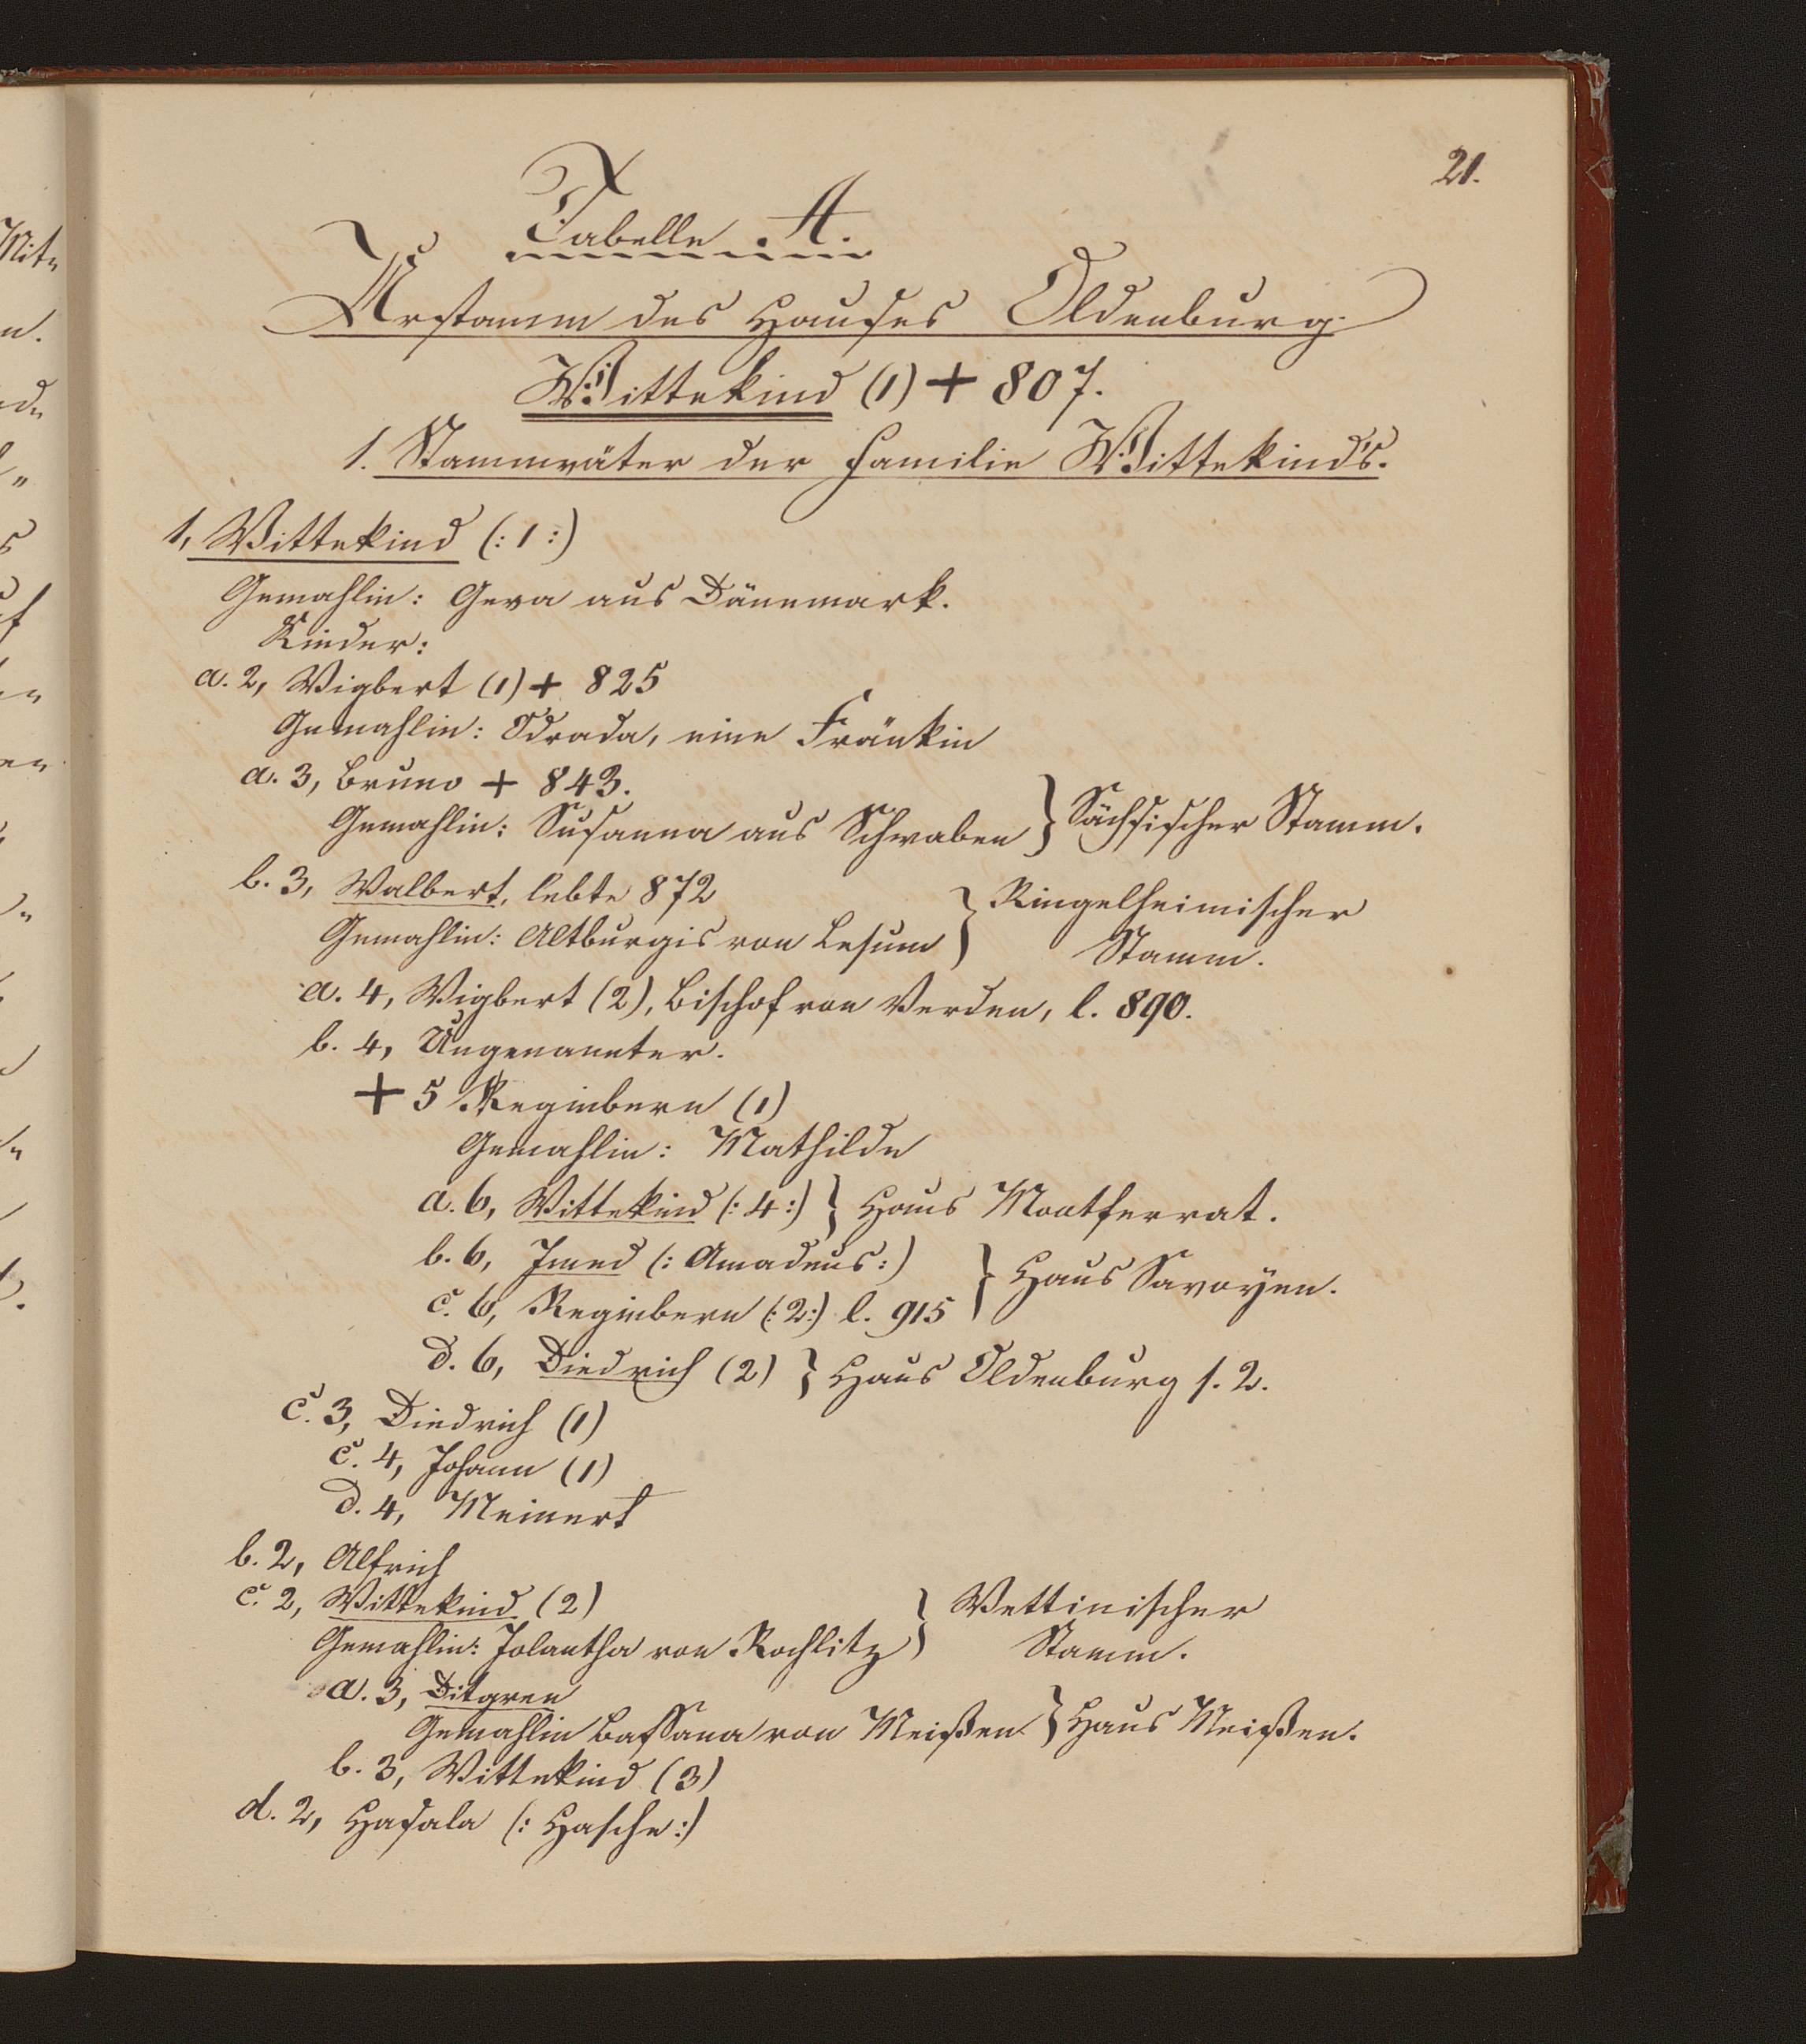 21.
Tabelle A.
Urstamm des Hauses Oldenburg.
Wittekind (1) + 807.
1. Stammväter der Familie Wittekind's.
1, Wittekind (: 1 :)
Gemahlin: Geva aus Dänemark.
Kinder:
a. 2, Wigbert (1) + 825
Gemahlin: Odrada, eine Fränkin
a. 3, Bruno + 843.
Gemahlin: Susanna aus Schwaben } Sächsischer Stamm.
b. 3, Walbert, lebte 872
Gemahlin: Altburgis von Lesum } Ringelheimischer Stamm.
a. 4, Wigbert (2), Bischof von Verden, l. 890.
b. 4, Ungenannter.
+ 5 Reginbern (1)
Gemahlin: Mathilde
a. 6, Wittekind (: 4 :) } Haus Montferrat.
b. 6, Imed (: Amadeus :)
c. 6, Reginbern (: 2 :) l. 915 } Haus Savoyen.
d. 6, Diedrich (2) } Haus Oldenburg s. 2.
c. 3, Diedrich (1)
c. 4, Johann (1)
d. 4, Meinert
b. 2, Alfrich
c. 2, Wittekind (2)
Gemahlin: Jolantha von Rochlitz } Wettinischer Stamm.
a. 3, Ditgren
Gemahlin Bassana von Meißen } Haus Meißen.
b. 3, Wittekind (3)
d. 2, Hasala (: Hasche :)